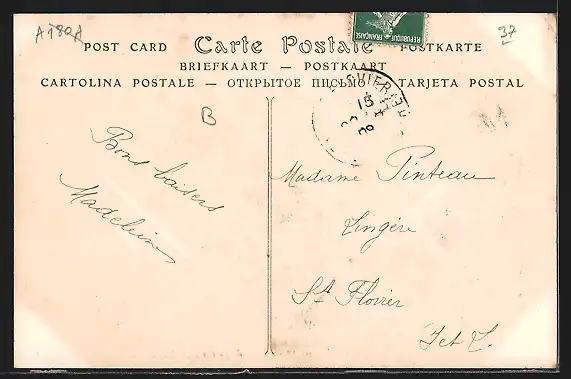 A1780A
37
POST CARD Carte Postale POSTKARTE
BRIEFKAART — POSTKAART
CARTOLINA POSTALE — ОТКРЫТОЕ ПИСЬМО — TARJETA POSTAL
REPUBLIQUE FRANÇAISE
B
Bons baisers
Madeleine
Madame Pinteau
Lingère
St Flovier
I et L.